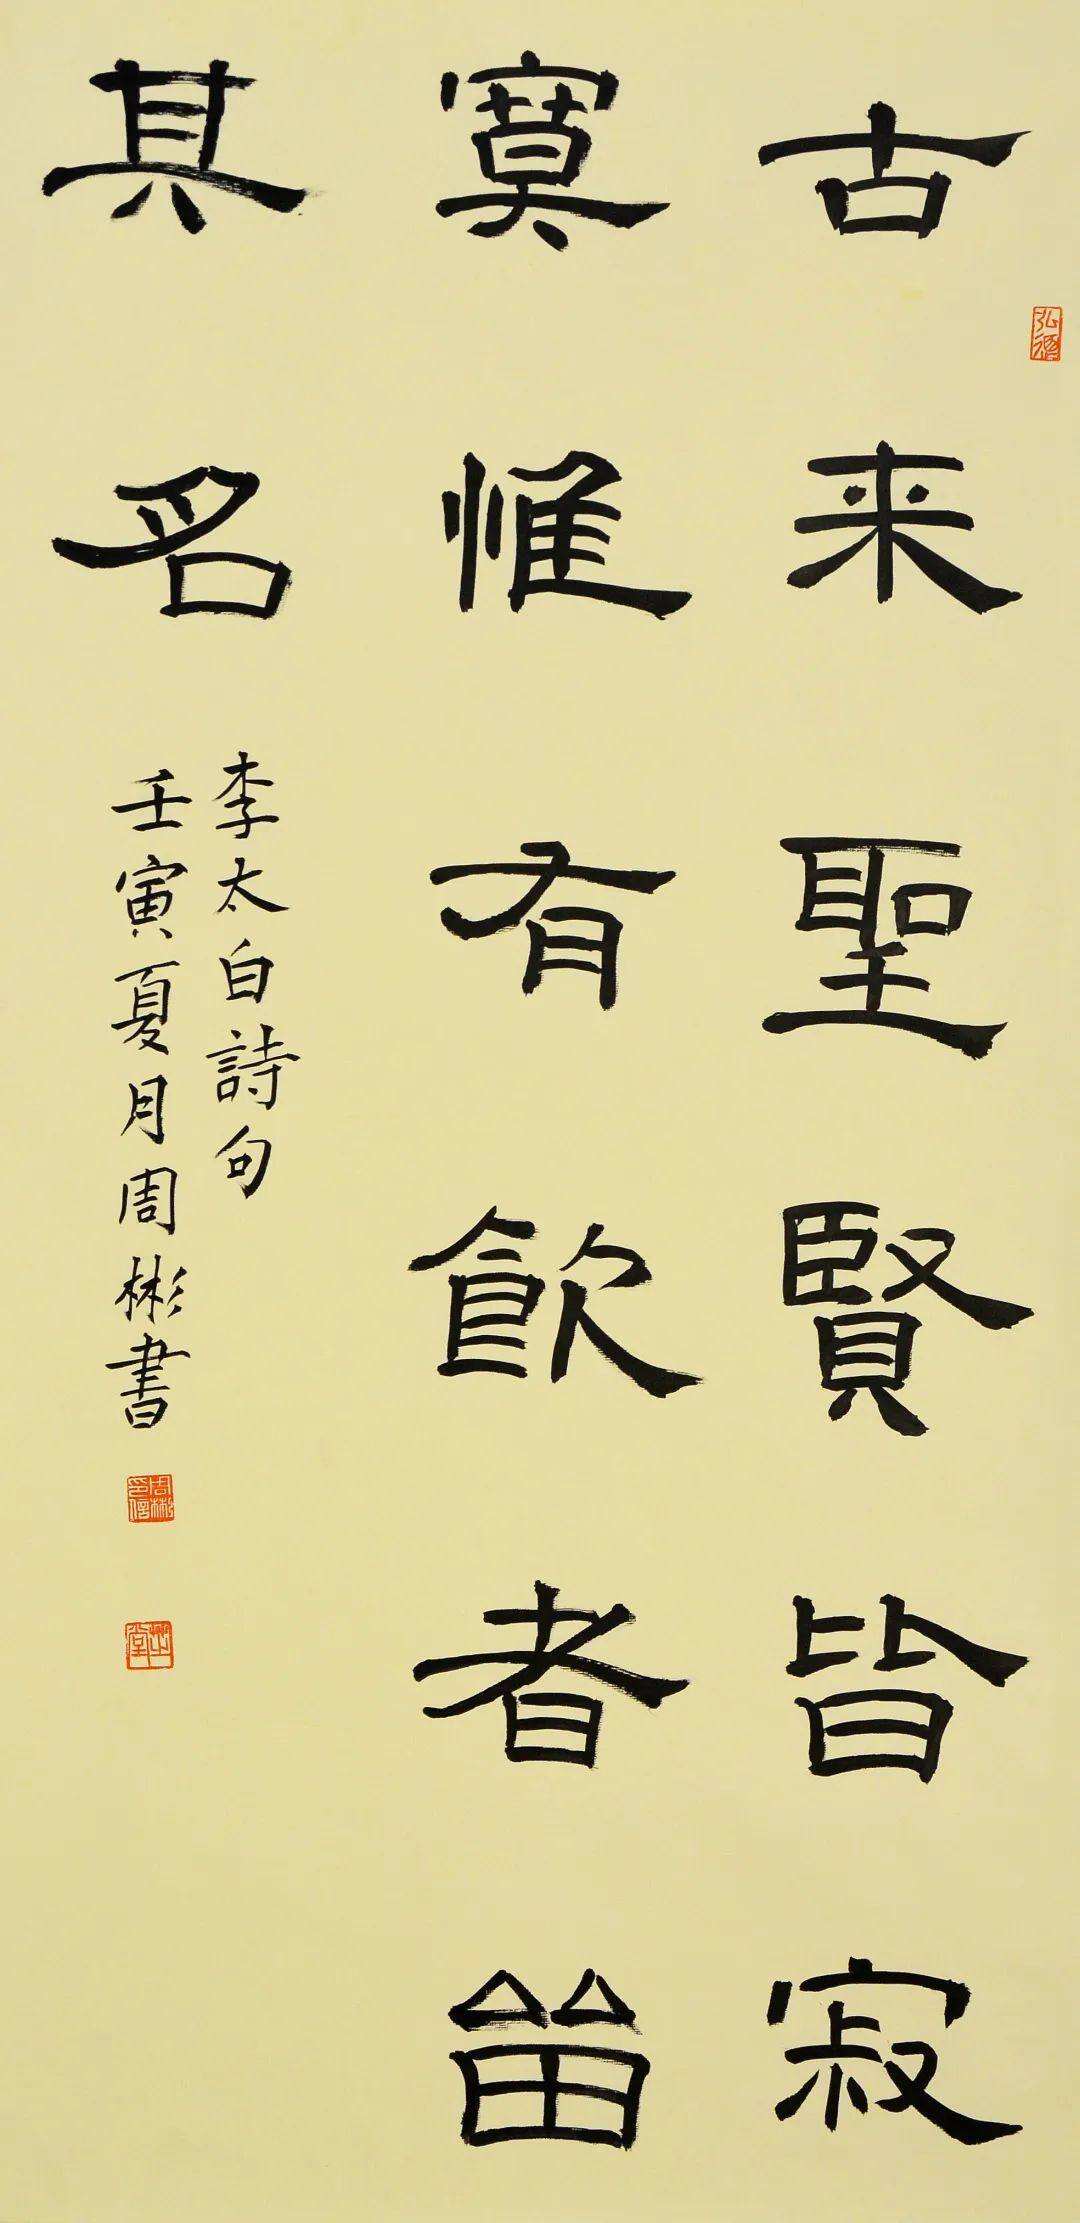 古来聖賢皆寂
寞惟有飲者畱
其名
李太白詩句
壬寅夏月周彬書
周彬印信